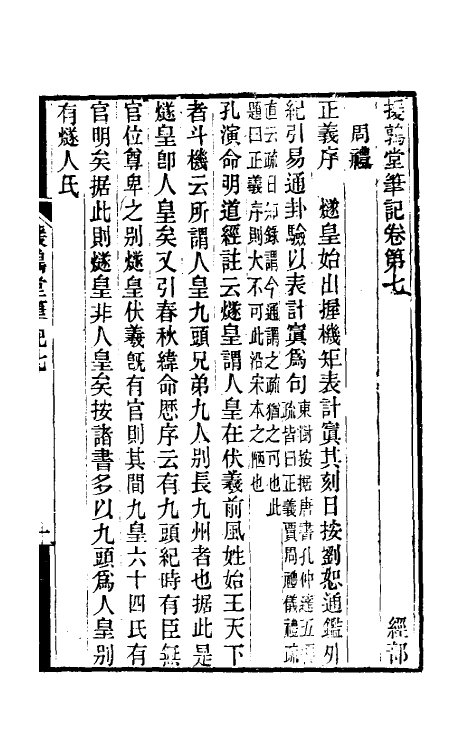 援鶉堂筆記卷第七　經部
周禮
正義序　燧皇始出握機矩表計寘其刻日按劉恕通鑑外
紀引易通卦驗以表計寘爲句
東樹按據唐書孔仲達五
疏皆曰正義賈周禮儀禮疏
直云疏日知錄謂今通謂之疏猶之可也此
題曰正義序則大不可此沿宋本之陋也
孔演命明道經註云燧皇謂人皇在伏羲前風姓始王天下
者斗機云所謂人皇九頭兄弟九人別長九州者也据此是
燧皇卽人皇矣又引春秋緯命歷序云有九頭紀時有臣無
官位尊卑之別燧皇伏羲旣有官則其間九皇六十四氏有
官明矣据此則燧皇非人皇矣按諸書多以九頭爲人皇別
有燧人氏
援鶉堂筆記七
一